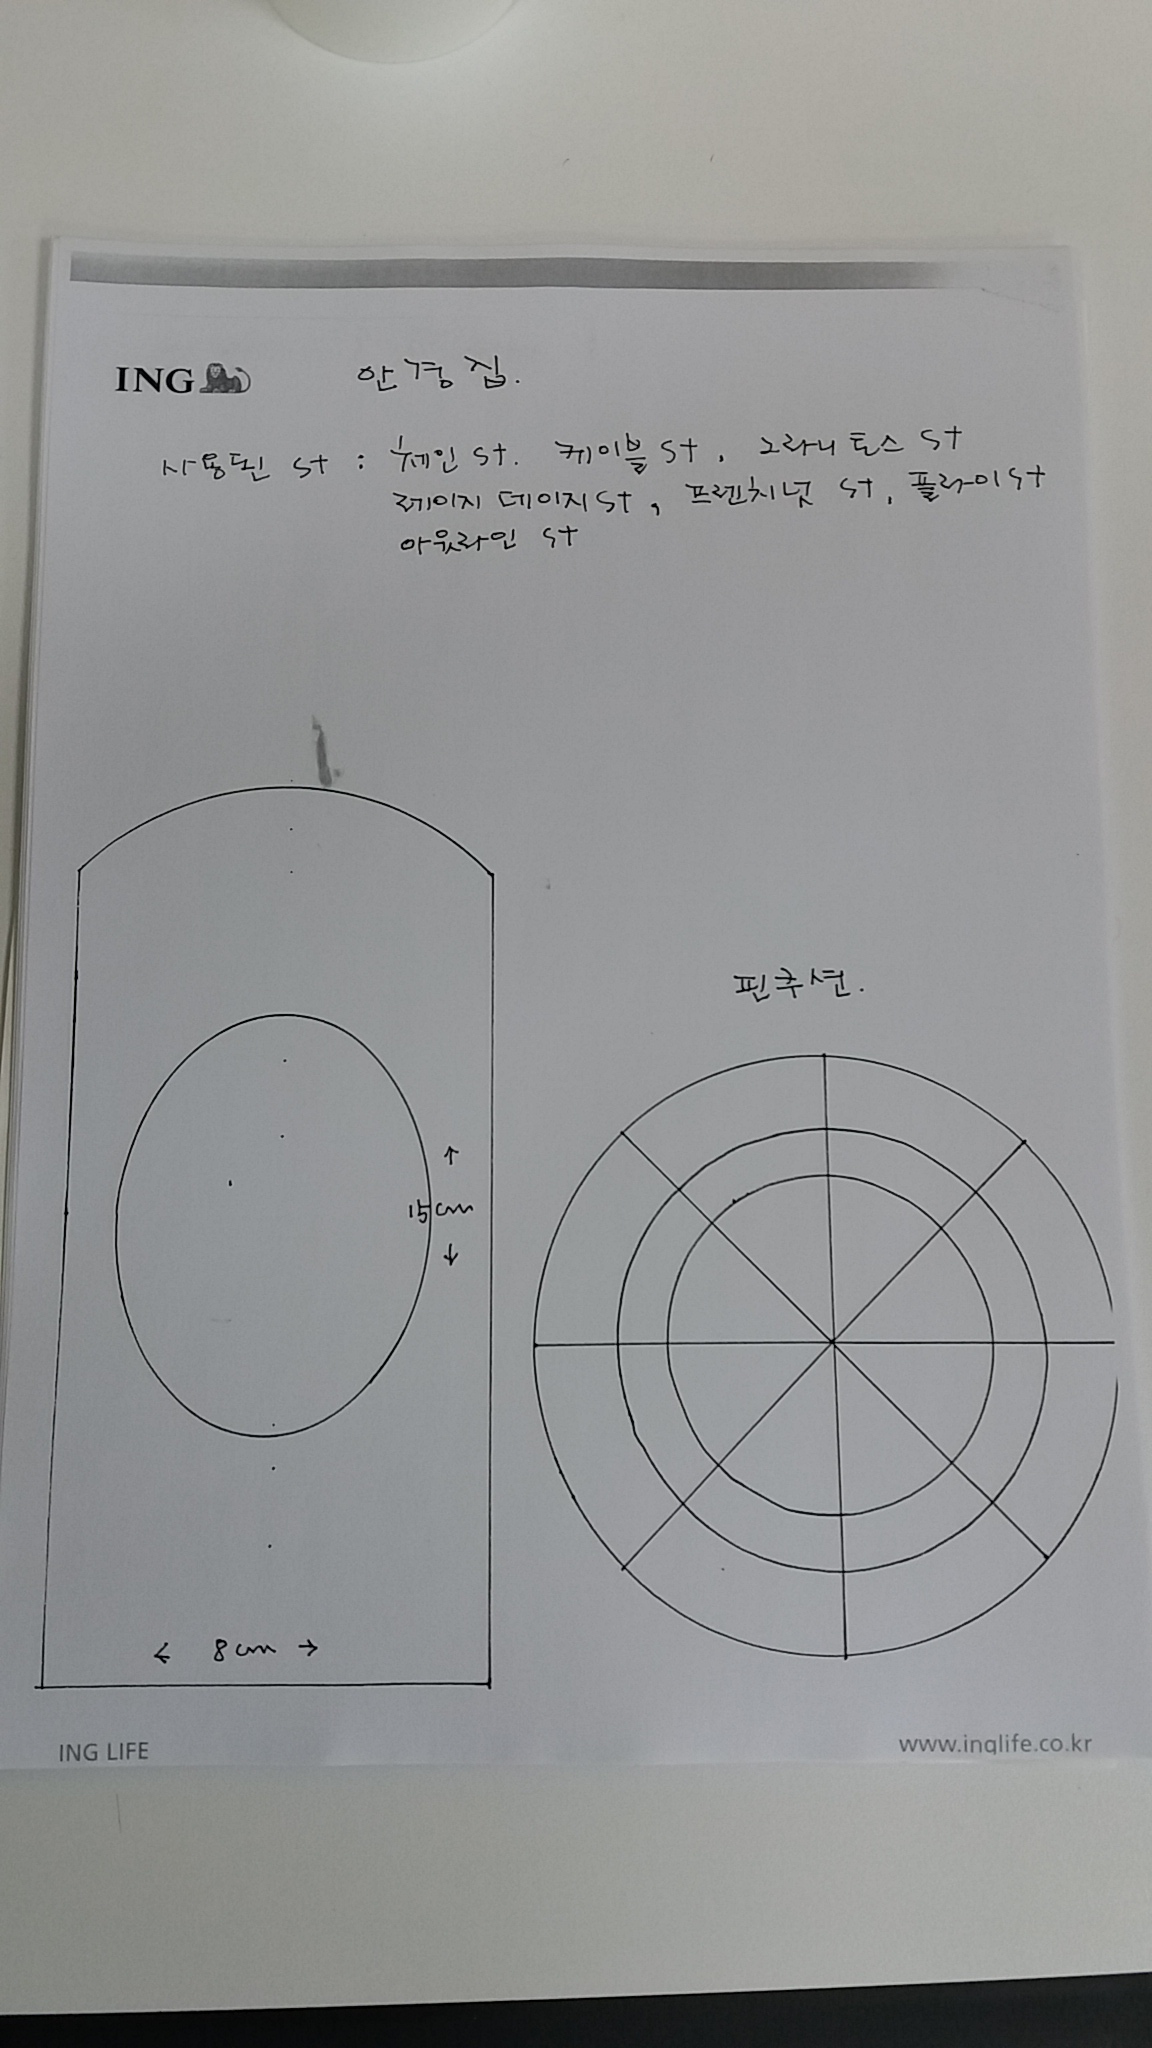 ING
안경집.
사용된 st : 췌인 st. 케이블 st, 그라니토스 st
레이지 데이지 st, 프렌치넛 st, 플라이 st
아웃라인 st
핀쿠션.
15cm
8cm
ING LIFE
www.inglife.co.kr